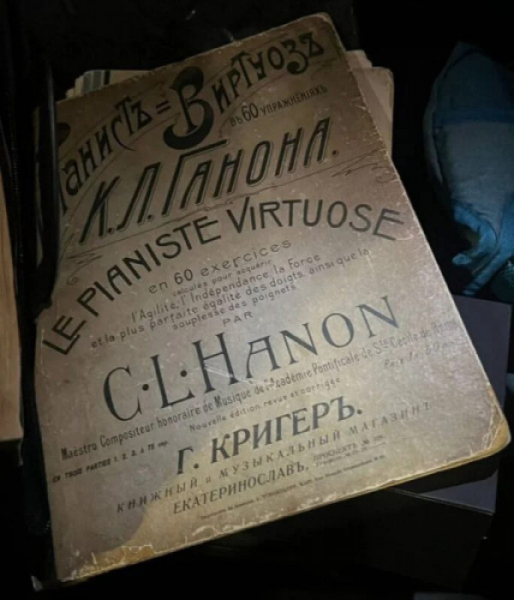 Піанистъ=Виртуозъ
въ 60 упражненіяхъ
К.Л.ГАНОНА.
LE PIANISTE VIRTUOSE
en 60 exercices
calculés pour acquérir
l'Agilité, l'Indépendance, la Force
et la plus parfaite égalité des doigts, ainsi que la
souplesse des poignets
PAR
C.L.HANON
Maestro Compositeur honoraire de Musique de l'Académie Pontificale de Ste Cécile de Rome
Nouvelle édition revue et corrigée
EN TROIS PARTIES 1, 2, 3, à 75 cop.
Г. КРИГЕРЪ.
КНИЖНЫЙ и МУЗЫКАЛЬНЫЙ МАГАЗИНЪ
ЕКАТЕРИНОСЛАВЪ, ПРОСПЕКТЪ №